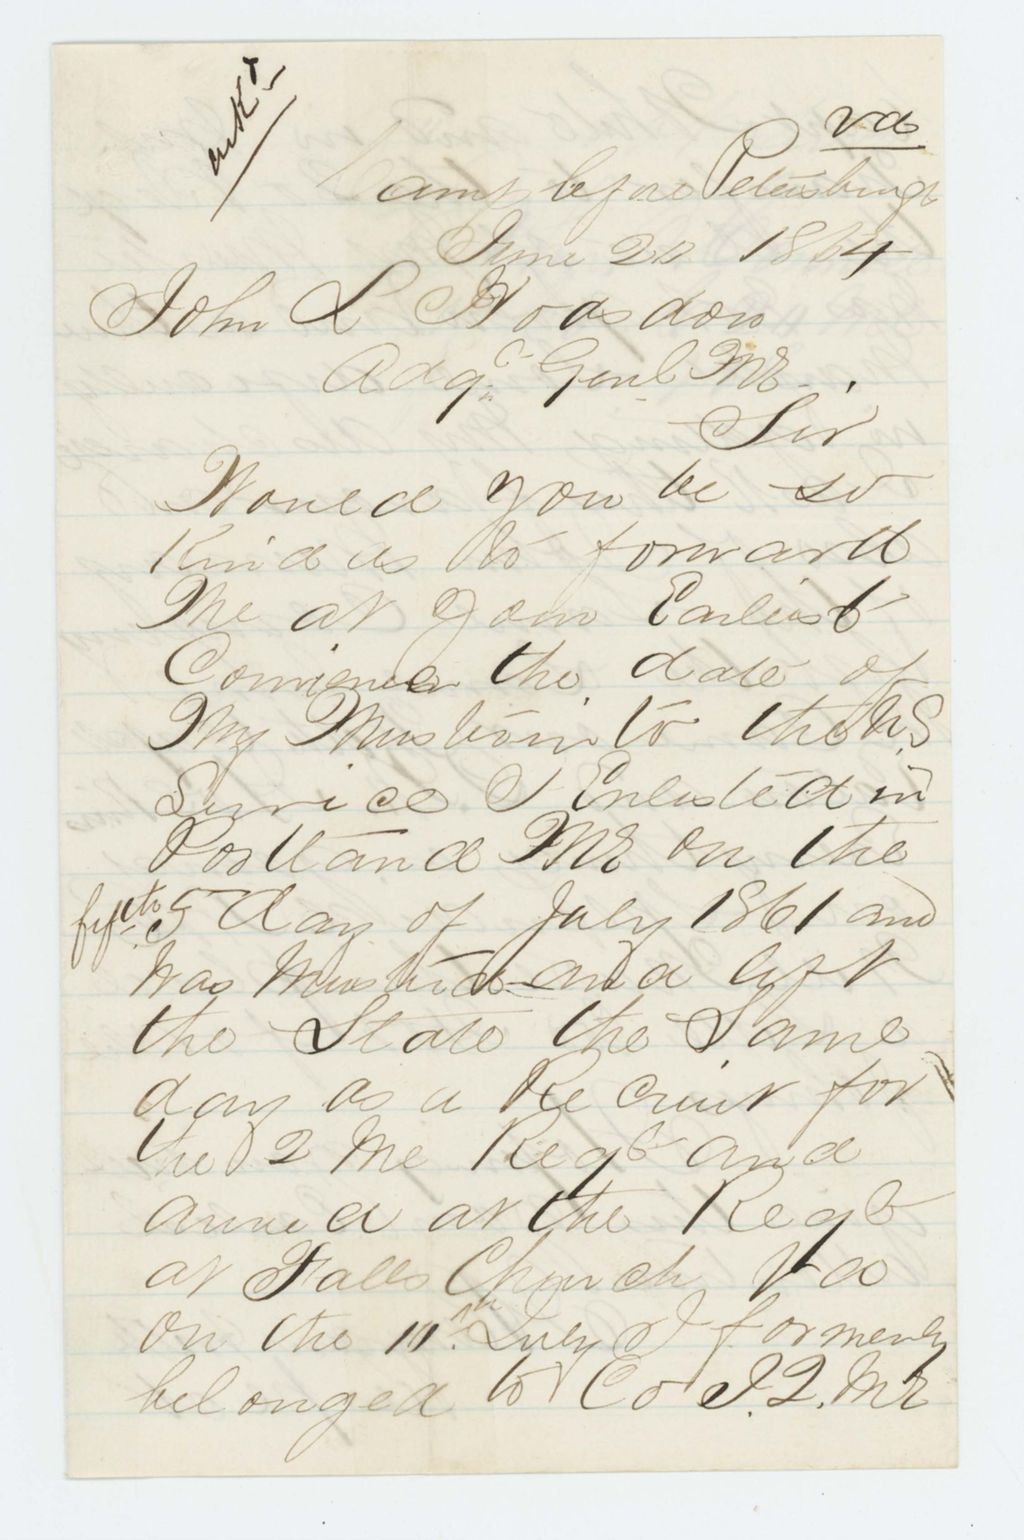 ackd
Va
Camp before Petersburgh
June 20 1864
John L Hodsdon
Adjt Genl Me
Sir
Would you be so
Kind as to forward
Me at your Earliest
the date of
My Muster in to the U.S
Service I Enlisted in
Portland Me on the
fifth 5 day of July 1861 and
Was Mustered and left
the State the Same
day as a Recruit for
the 2 Me Regt and
arrived at the Regt
at Falls Church Va
On the July I formerly
belonged to Co I. 2. Me